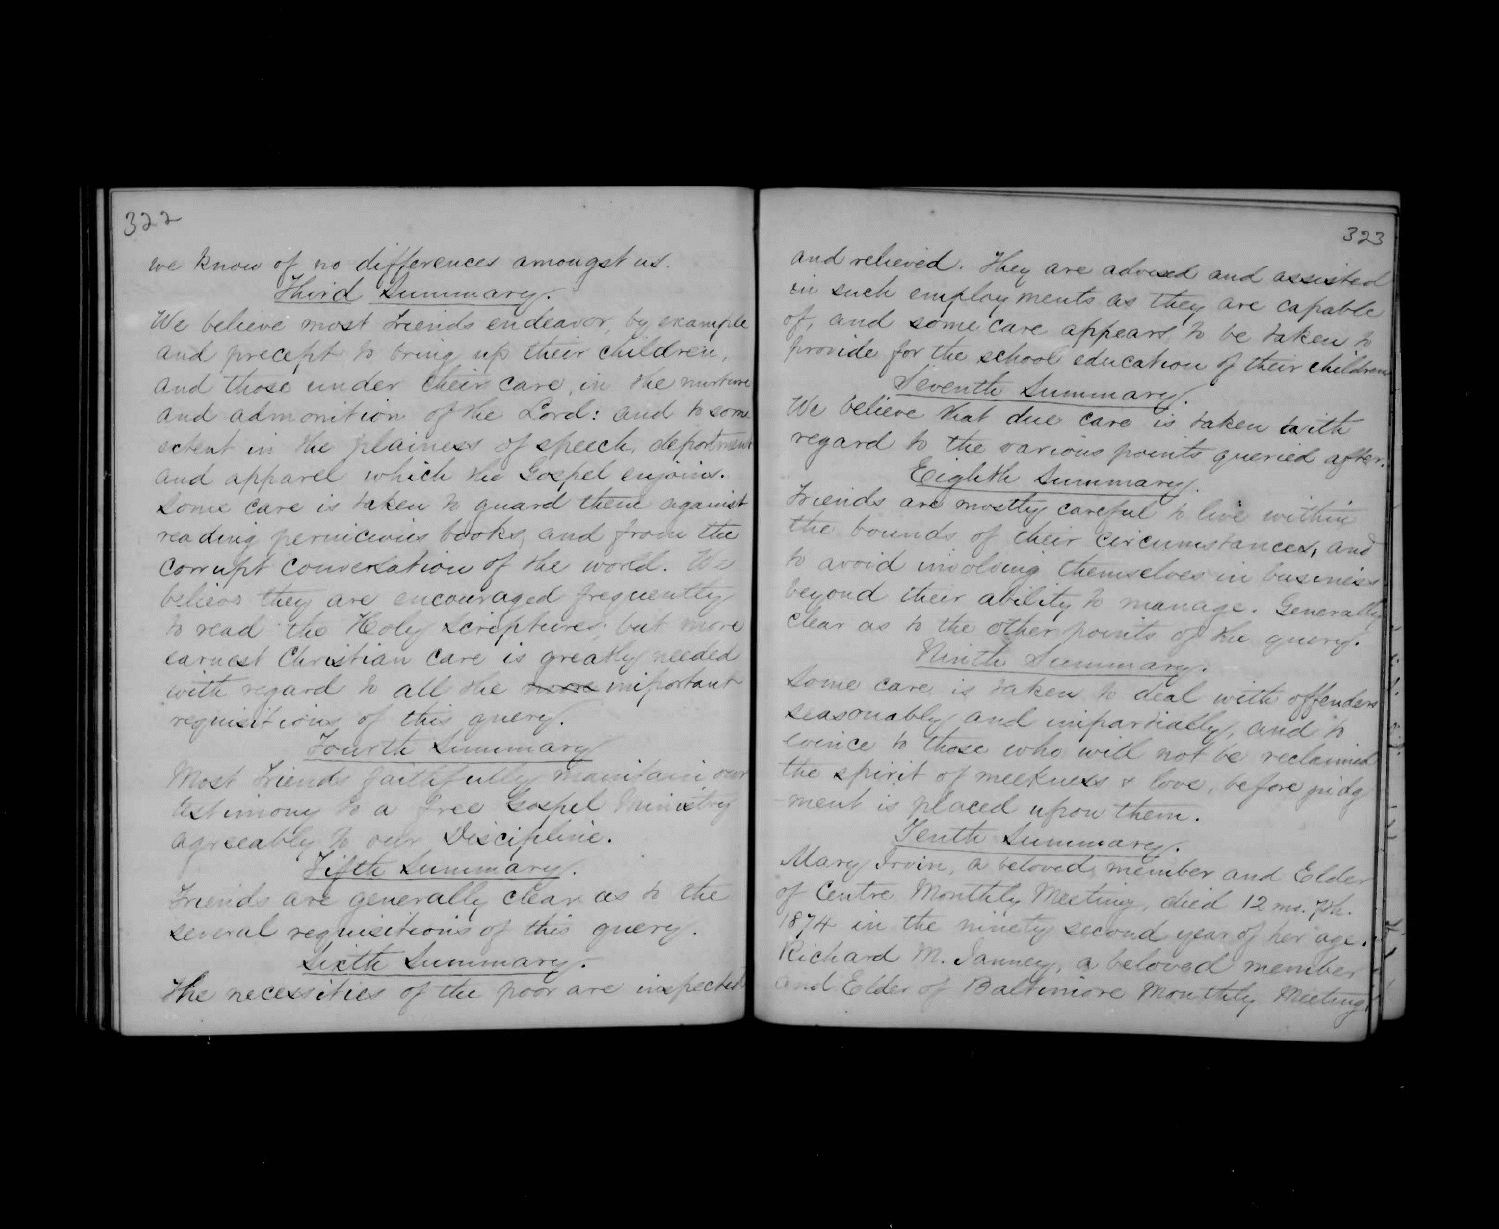 322
we know of no differences amongst us.
Third Summary.
We believe most Friends endeavor, by example
and precept to bring up their children,
and those under their care, in the nurture
and admonition of the Lord: and to some
extent in the plainess of speech, deportment
and apparel which the Gospel enjoins.
Some care is taken to guard them against
reading pernicious books, and from the
corrupt conversation of the world. We
believe they are encouraged frequently
to read the Holy Scriptures; but more
earnest Christian care is greatly needed
with regard to all the more important
requisitions of this query.
Fourth Summary
Most Friends faithfully maintain our
testimony to a free Gospel Ministry
agreeably to our Discipline.
Fifth Summary.
Friends are generally clear as to the
several requisitions of this query.
Sixth Summary.
The necessities of the poor are inspected
323
and relieved. They are advised and assisted
in such employments as they are capable
of, and some care appears to be taken to
provide for the school education of their children
Seventh Summary.
We believe that due care is taken with
regard to the various points queried after.
Eighth Summary.
Friends are mostly careful to live within
the bounds of their circumstances, and
to avoid involving themselves in business
beyond their ability to manage. Generally
clear as to the other points of the query.
Ninth Summary.
Some care is taken to deal with offenders
seasonably and impartially, and to
evince to those who will not be reclaimed
the spirit of meekness & love, before judg
-ment is placed upon them.
Tenth Summary.
Mary Irvin, a beloved member and Elder
of Centre Monthly Meeting, died 12 mo. 7th.
1874 in the ninety second year of her age.
Richard M. Janney, a beloved member
and Elder of Baltimore Monthly Meeting,